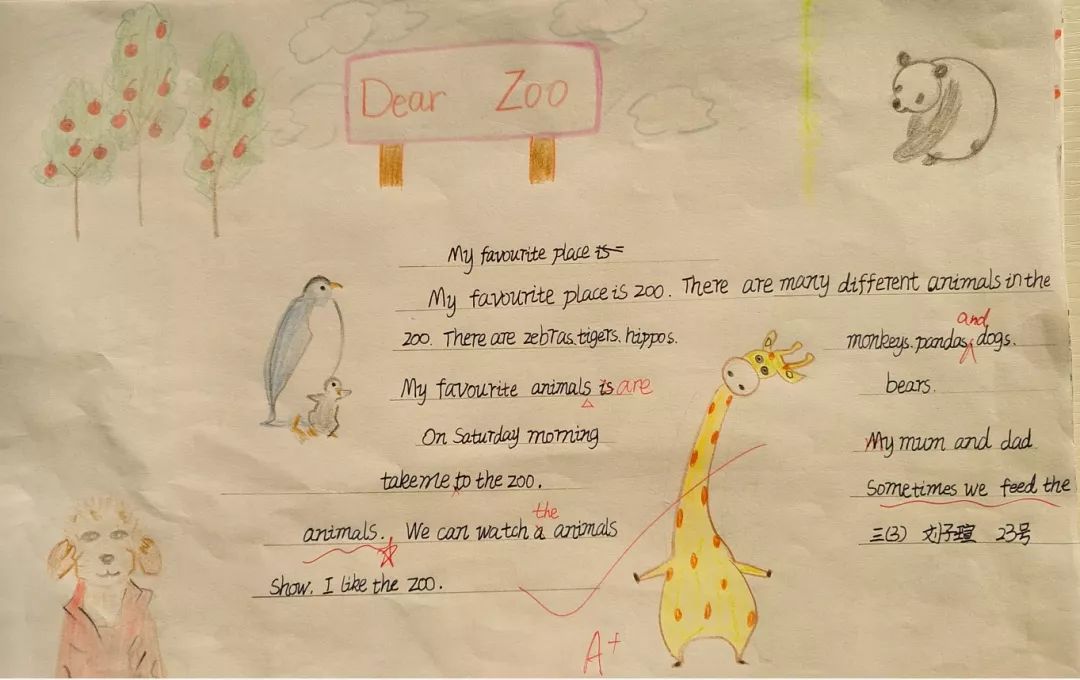 Dear Zoo
My favourite place is
My favourite place is zoo. There are many different animals in the
zoo. There are zebras, tigers, hippos. monkeys, pandas, and dogs.
My favourite animals is are bears.
On Saturday morning My mum and dad
take me to the zoo. Sometimes we feed the
animals. We can watch a the animals
show. I like the zoo.
三(3) 刘子瑄 23号
A+